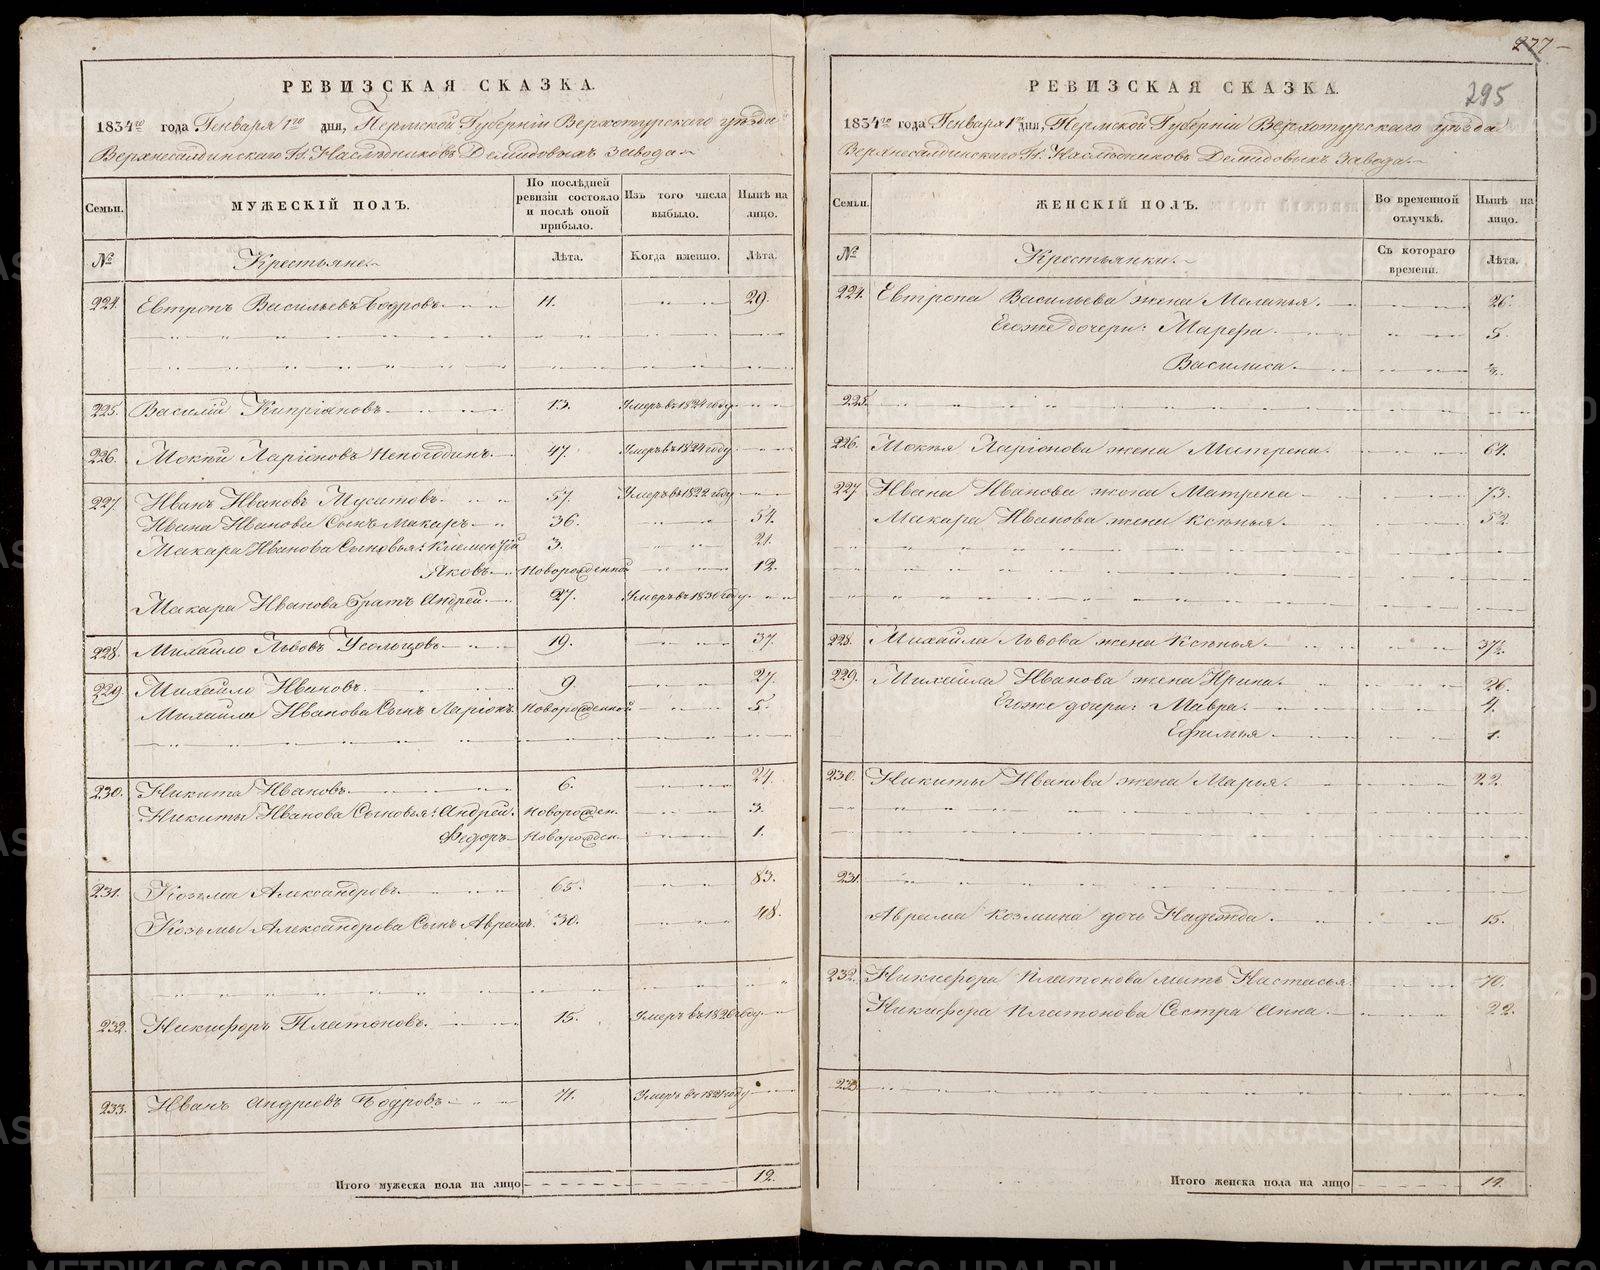 277
295
РЕВИЗСКАЯ СКАЗКА.
1834го года Генваря 1го дня, Пермской Губерніи Верхотурскаго уѣзда
Верхнесалдинскаго Н. Наслѣдниковъ Демидовыхъ завода
Семьи. МУЖЕСКІЙ ПОЛЪ. По послѣдней ревизіи состояло и послѣ оной прибыло. Изъ того числа выбыло. Нынѣ на лицо.
№ Крестьяне. Лѣта. Когда именно. Лѣта.
224. Евтропъ Васильевъ Бодровъ 11. 29.
225. Василій Кипріановъ 13. Умеръ въ 1824 году
226. Мокѣй Ларіоновъ Непогодинъ 47. Умеръ въ 1824 году
227. Иванъ Ивановъ Мусатовъ 57. Умеръ въ 1822 году
Ивана Иванова Сынъ Макаръ 36. 54.
Макара Иванова Сыновья: Клементій 3. 21.
Яковъ Новорожденной 12.
Макара Иванова Братъ Андрей 27. Умеръ въ 1830 году
228. Михайло Львовъ Усольцовъ 19. 37.
229. Михайло Ивановъ 9. 27.
Михайла Иванова Сынъ Ларіонъ Новорожденной 5.
230. Никита Ивановъ 6. 24.
Никиты Иванова Сыновья: Андрей Новорожден. 3.
Федоръ Новорожден. 1.
231. Козьма Александровъ 65. 83.
Козьмы Александрова Сынъ Аврамъ. 30. 48.
232. Никифоръ Платоновъ 15. Умеръ въ 1826 году
233. Иванъ Андреевъ Бодровъ 71. Умеръ въ 1821 году
Итого мужеска пола на лицо 12.
РЕВИЗСКАЯ СКАЗКА.
1834го года Генваря 1го дня, Пермской Губерніи Верхотурскаго уѣзда
Верхнесалдинскаго Н. Наслѣдниковъ Демидовыхъ завода
Семьи. ЖЕНСКІЙ ПОЛЪ. Во временной отлучкѣ. Нынѣ на лицо.
№ Крестьянки. Съ котораго времени. Лѣта.
224. Евтропа Васильева жена Меланья 26.
Егоже дочери: Марѳа 5.
Василиса
225.
226. Мокѣя Ларіонова жена Матрена 61.
227. Ивана Иванова жена Матрена 73.
Макара Иванова жена Ксенья 52.
228. Михайла Львова жена Ксенья 37½.
229. Михайла Иванова жена Ирина 26.
Егоже дочери: Мавра 4.
Ефимья 1.
230. Никиты Иванова жена Марья 22.
231.
Аврама Козмина дочь Надежда 15.
232. Никифора Платонова мать Настасья 70.
Никифора Платонова Сестра Анна 22.
233.
Итого женска пола на лицо
METRIKI.GASO-URAL.RU